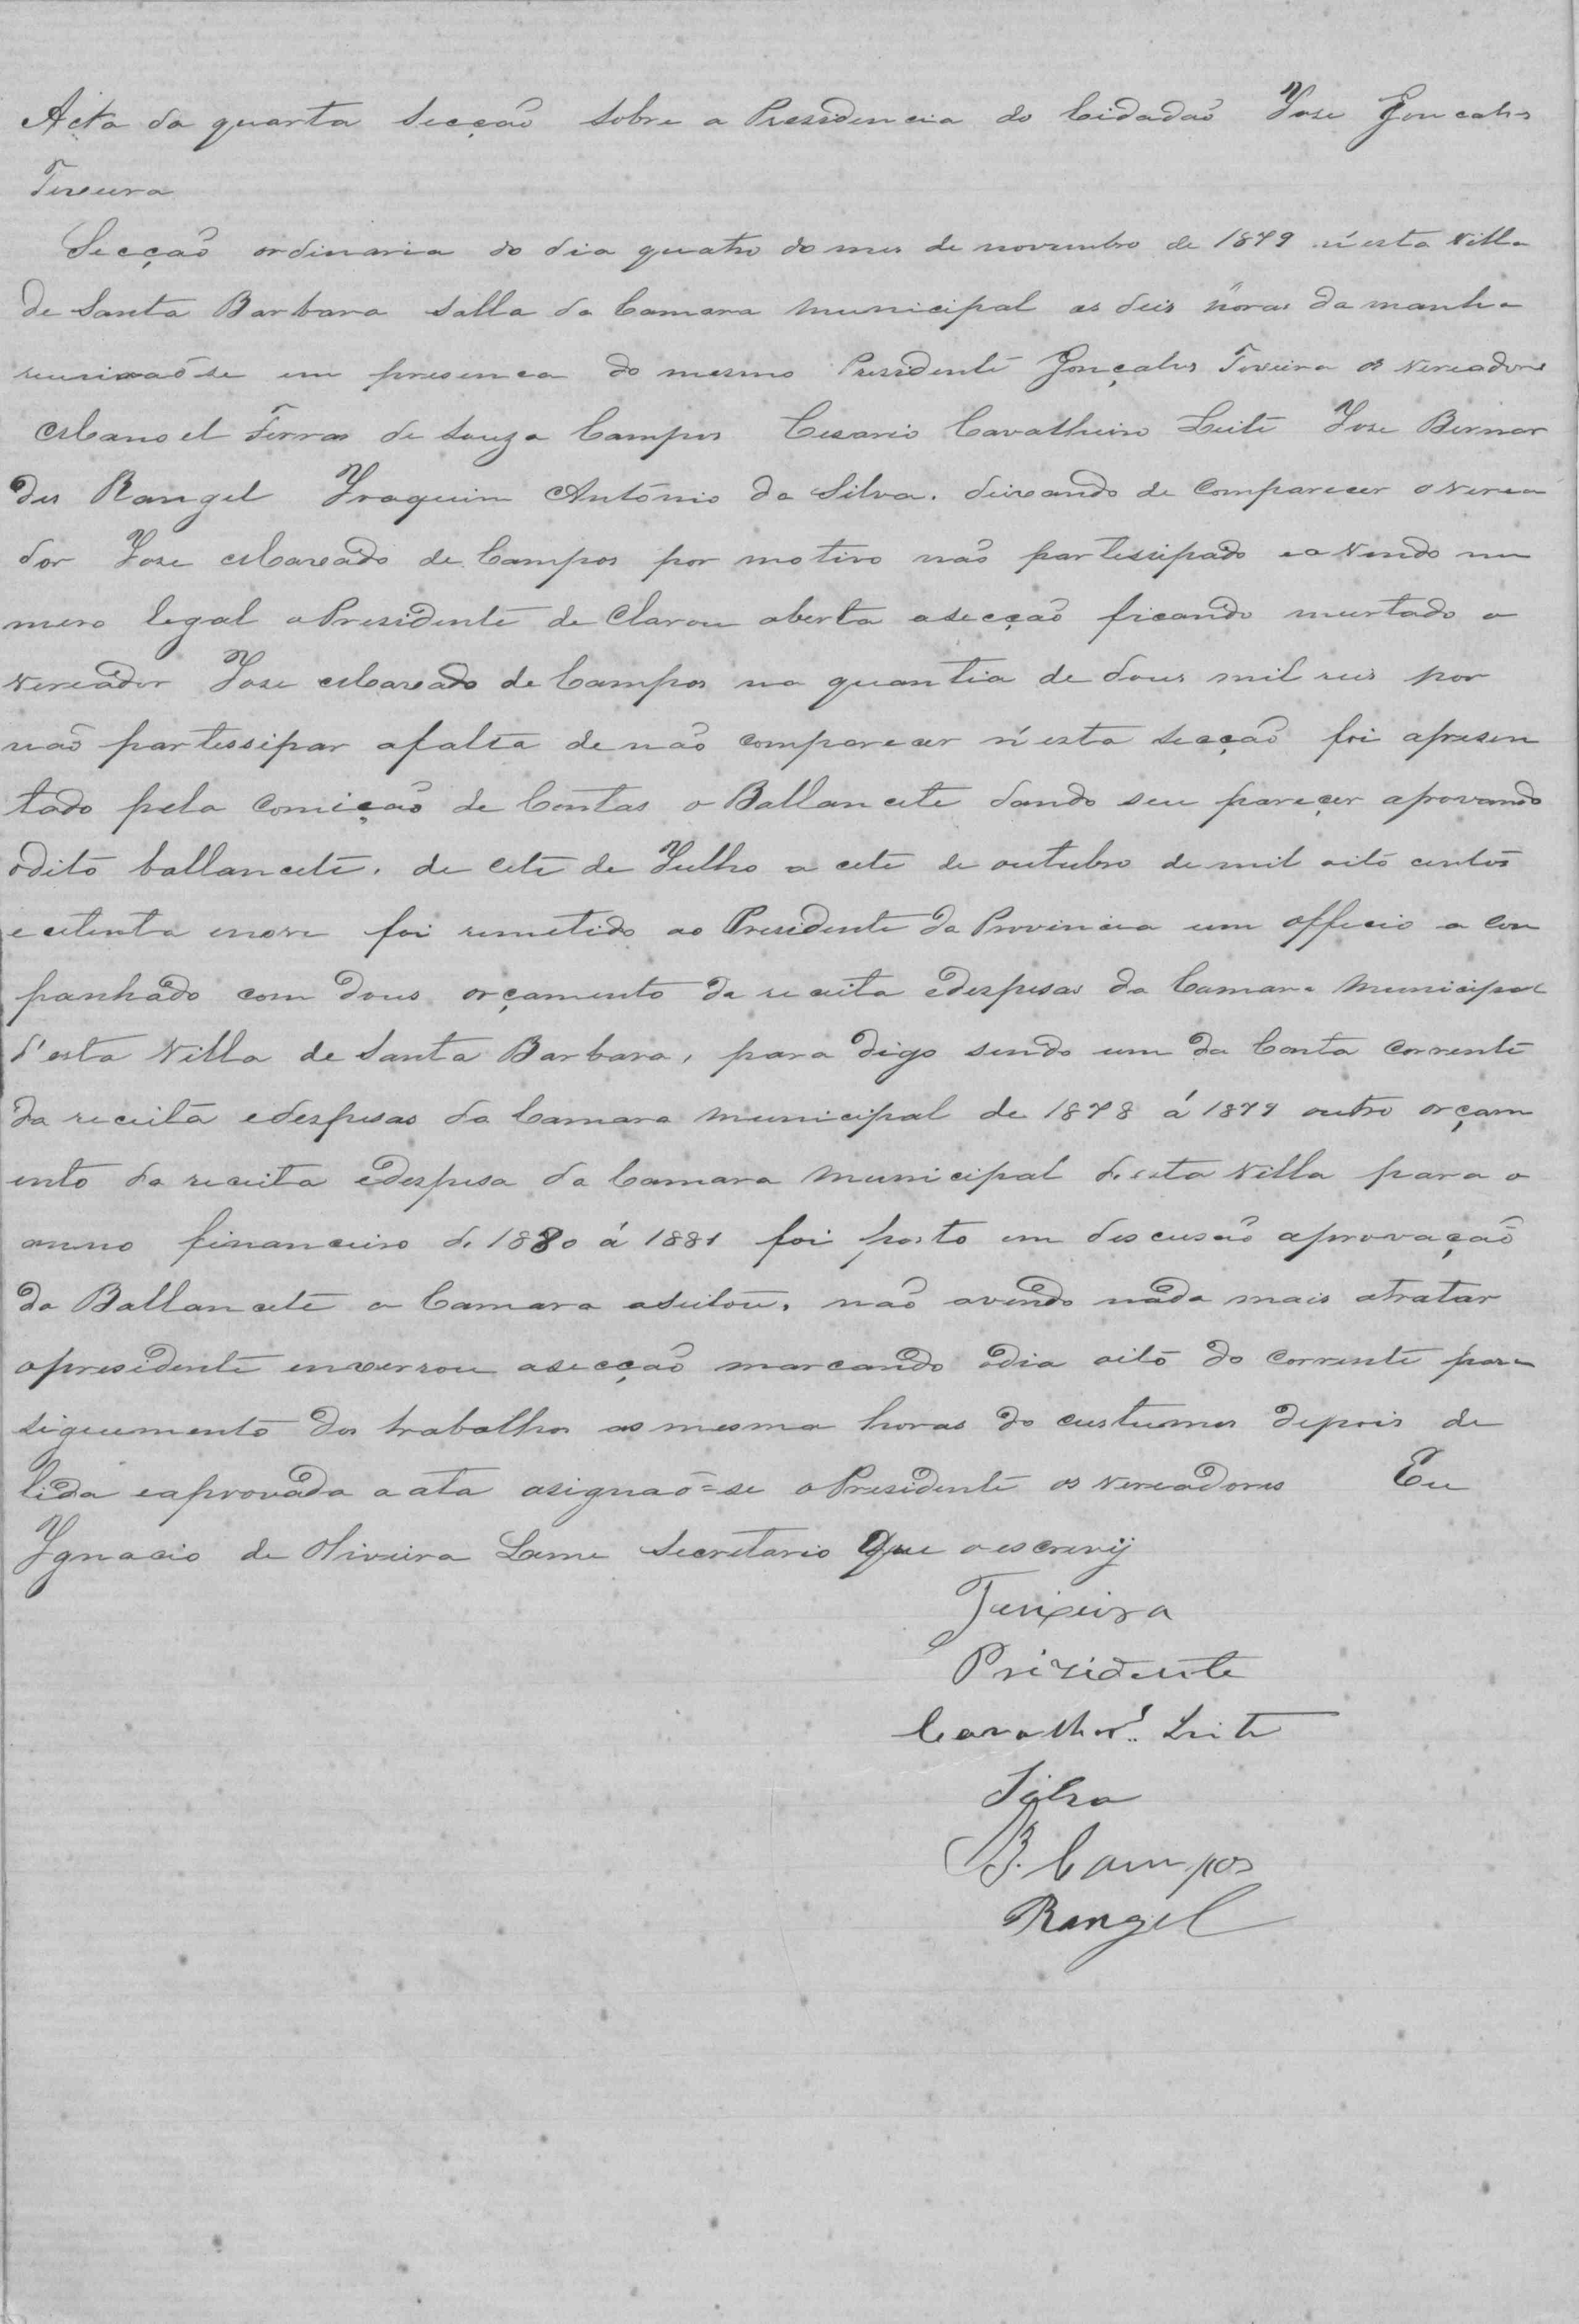 Acta da quarta Secção sobre a Presidencia do Cidadão Jose Goncalves
Texeira
Secção ordinaria do dia quatro do mes de novembro de 1879 n'esta Villa
de Santa Barbara salla da Camara Municipal as deis horas da manha
reunirão-se em presenca do mesmo Presidente Gonçalves Texeira os Vereadores
Manoel Ferras de Souza Campos Cesario Cavalheiro Leite Jose Bernar
des Rangel Joaquim António da Silva. deixando de comparecer o verea
dor Jose Maxado de Campos por motivo não partissipado e avendo nu
mero legal o Presidente de Clarou aberta a secção ficando murtado o
Vereador Jose Maxado de Campos na quantia de dous mil reis por
não partissipar a falta de não comparecer n'esta secção foi apresen
tado pela comição de Contas o Ballancete dando seu pareçer aprovando
o dito ballancete. de cete de Julho a cete de outubro de mil oito centos
e cetenta e nove foi remetido ao Presidente da Provincia um officio a con
panhado com dous orçamento da receita e despesas da Camara Municipal
d'esta Villa de Santa Barbara, para digo sendo um da Conta Corrente
da receita e despesas da Camara Municipal de 1878 á 1879 outro orçam
ento da receita e despesa da Camara Municipal desta Villa para o
anno financeiro de 1880 á 1881 foi posto em descusão aprovação
do Ballancete a Camara aseitou. não avendo nada mais a tratar
o presidente enxerrou a secção marcando o dia oito do corrente para
siguemento dos trabalhos as mesma horas do custumes depois de
lida e aprovada a ata asignaõ=se o Presidente os Vereadores Eu
Ygnacio de Oliveira Leme Secretario que o escrevij
Teixeira
Prizidente
Cavalhro. Leite
Silva
B. Campos
Rangel